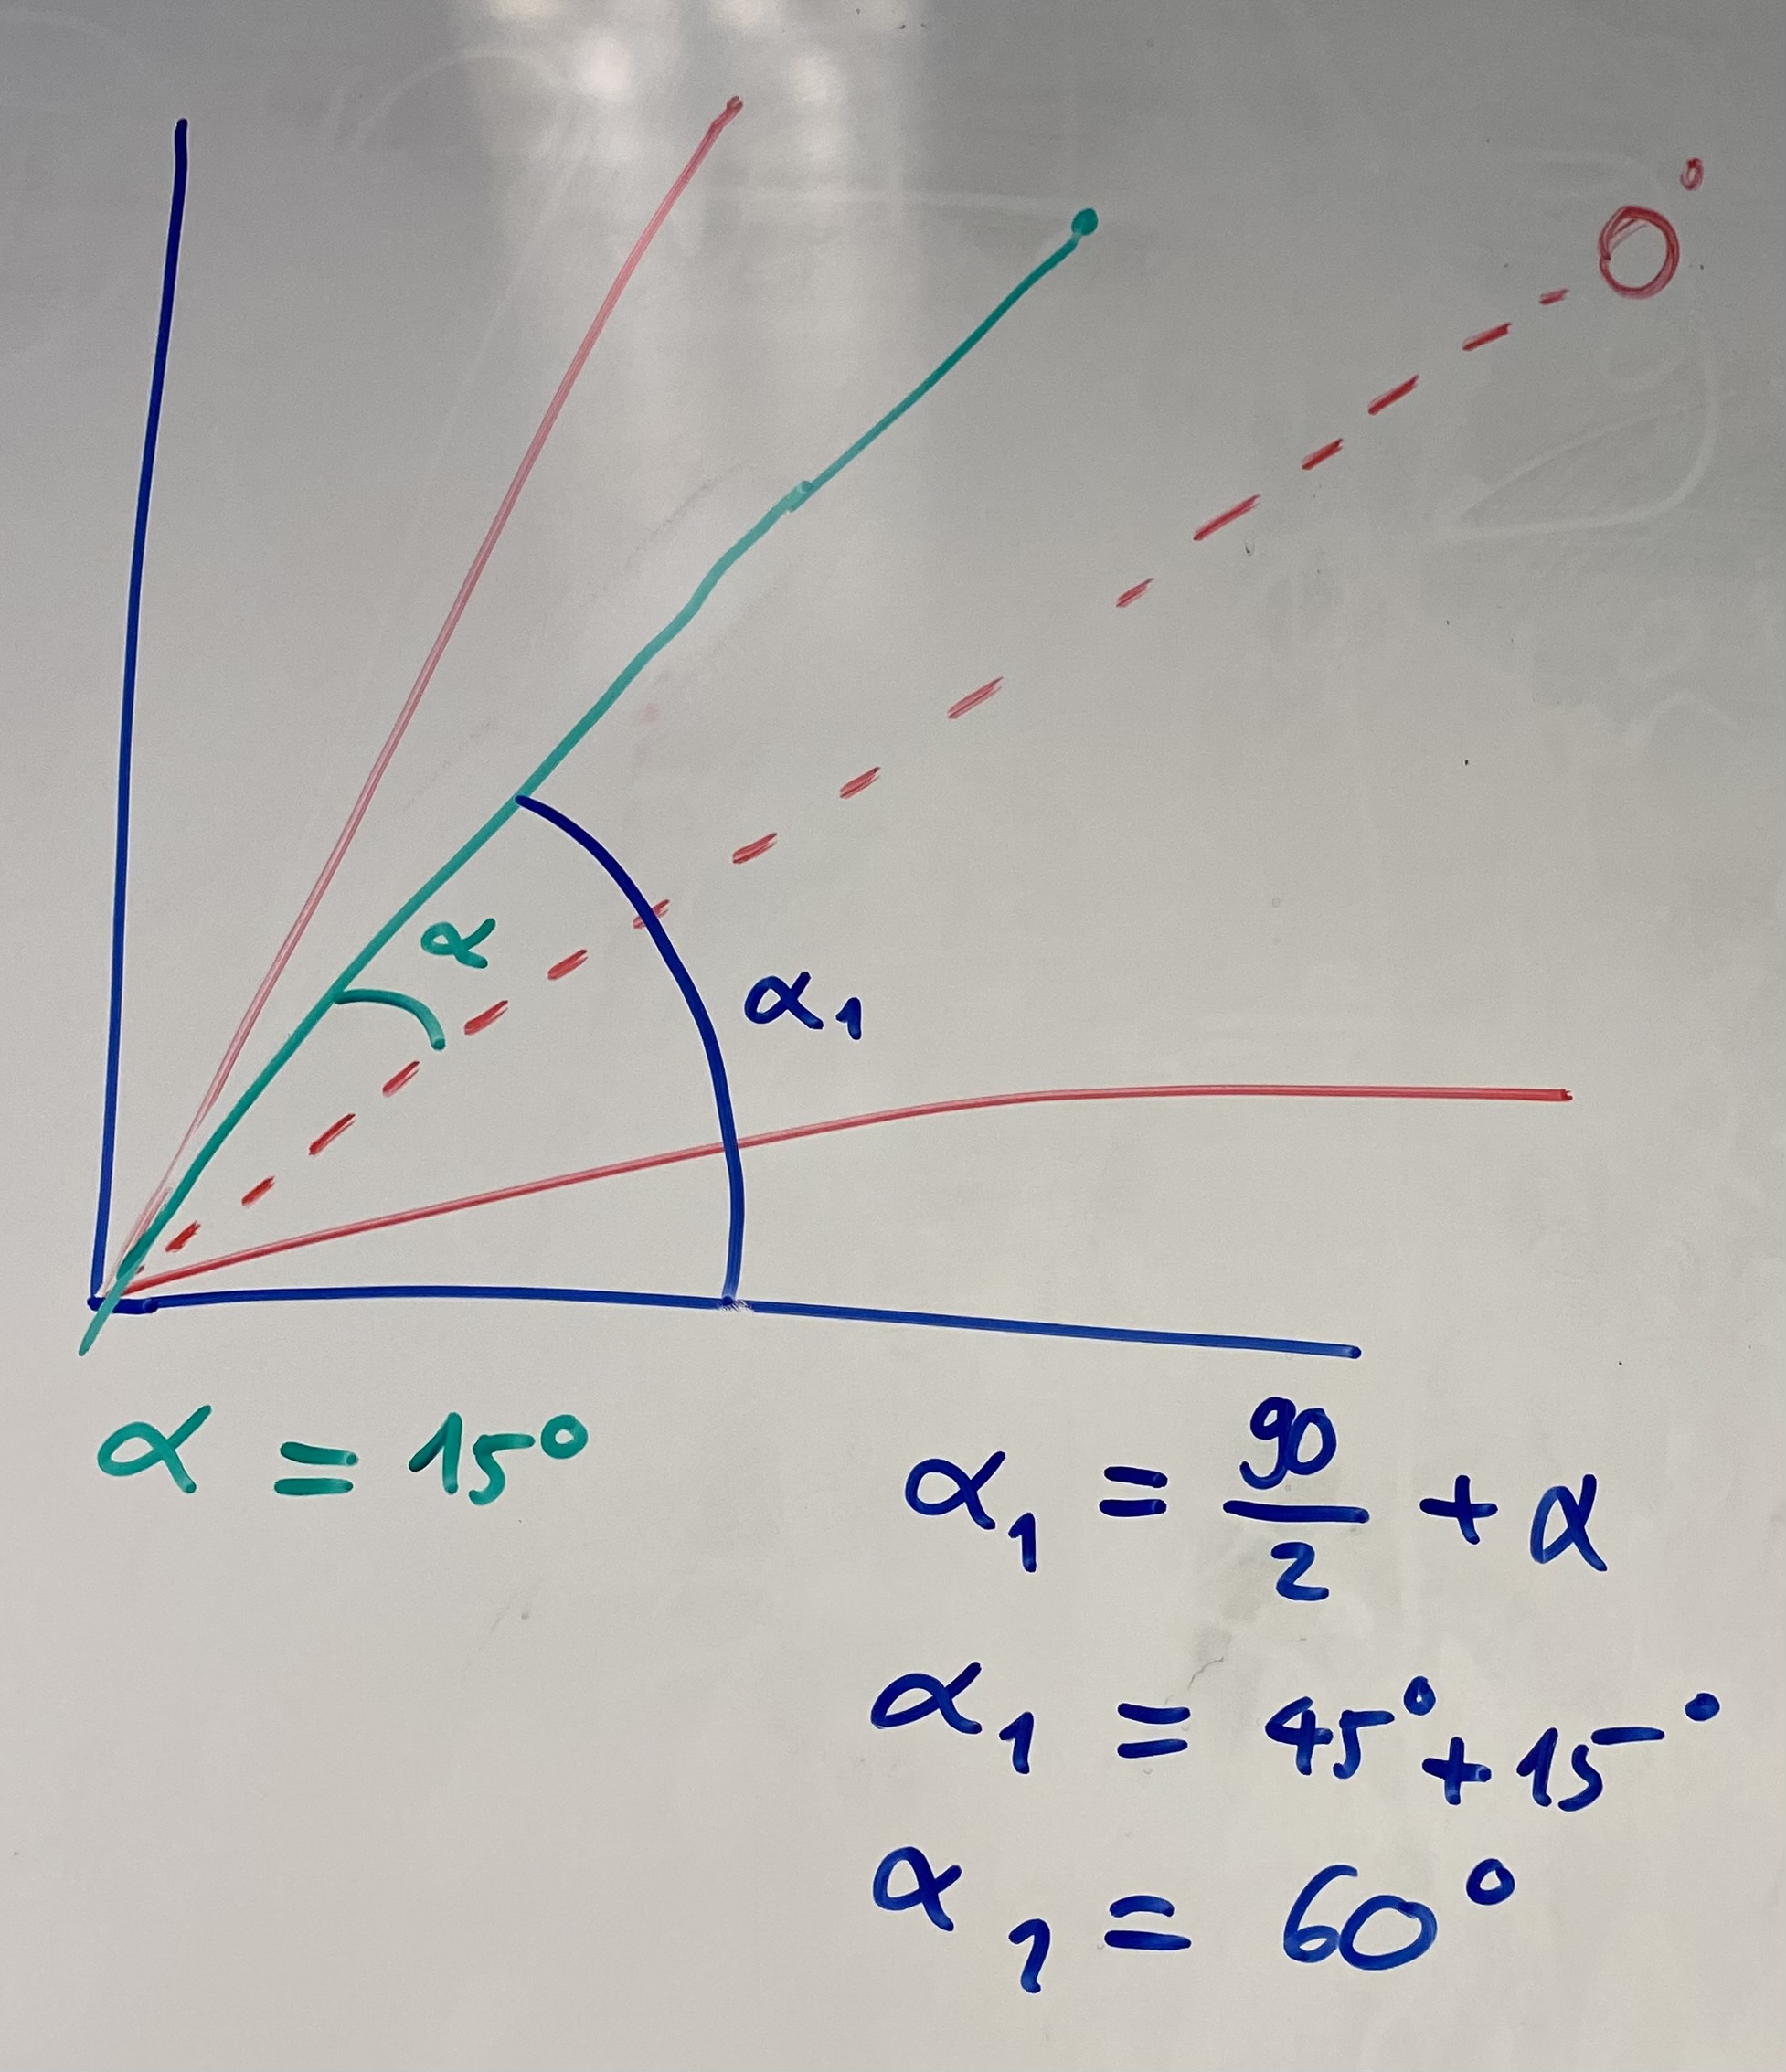 0°
α
α₁
α = 15°
α₁ = 90/2 + α
α₁ = 45° + 15°
α₁ = 60°